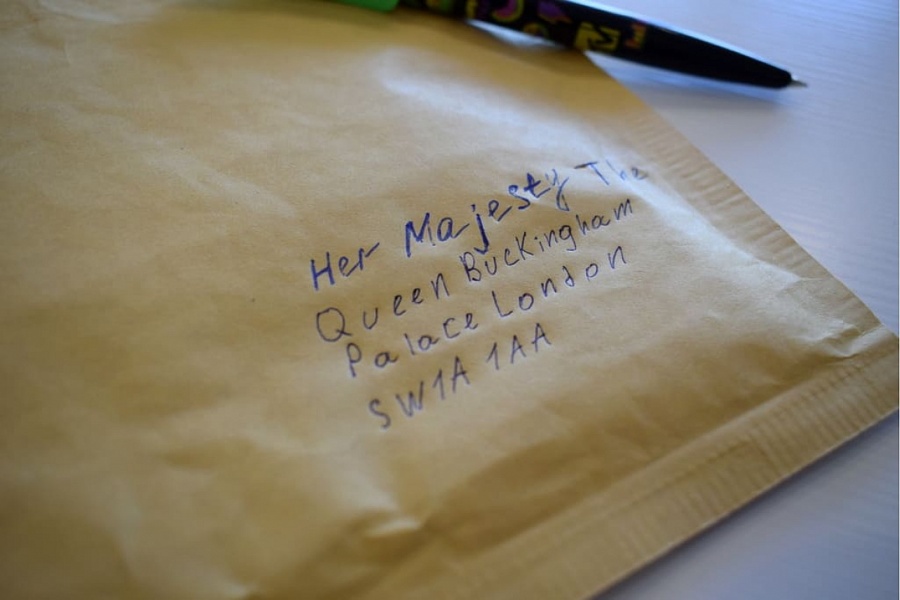 Her Majesty The
Queen Buckingham
Palace London
SW1A 1AA